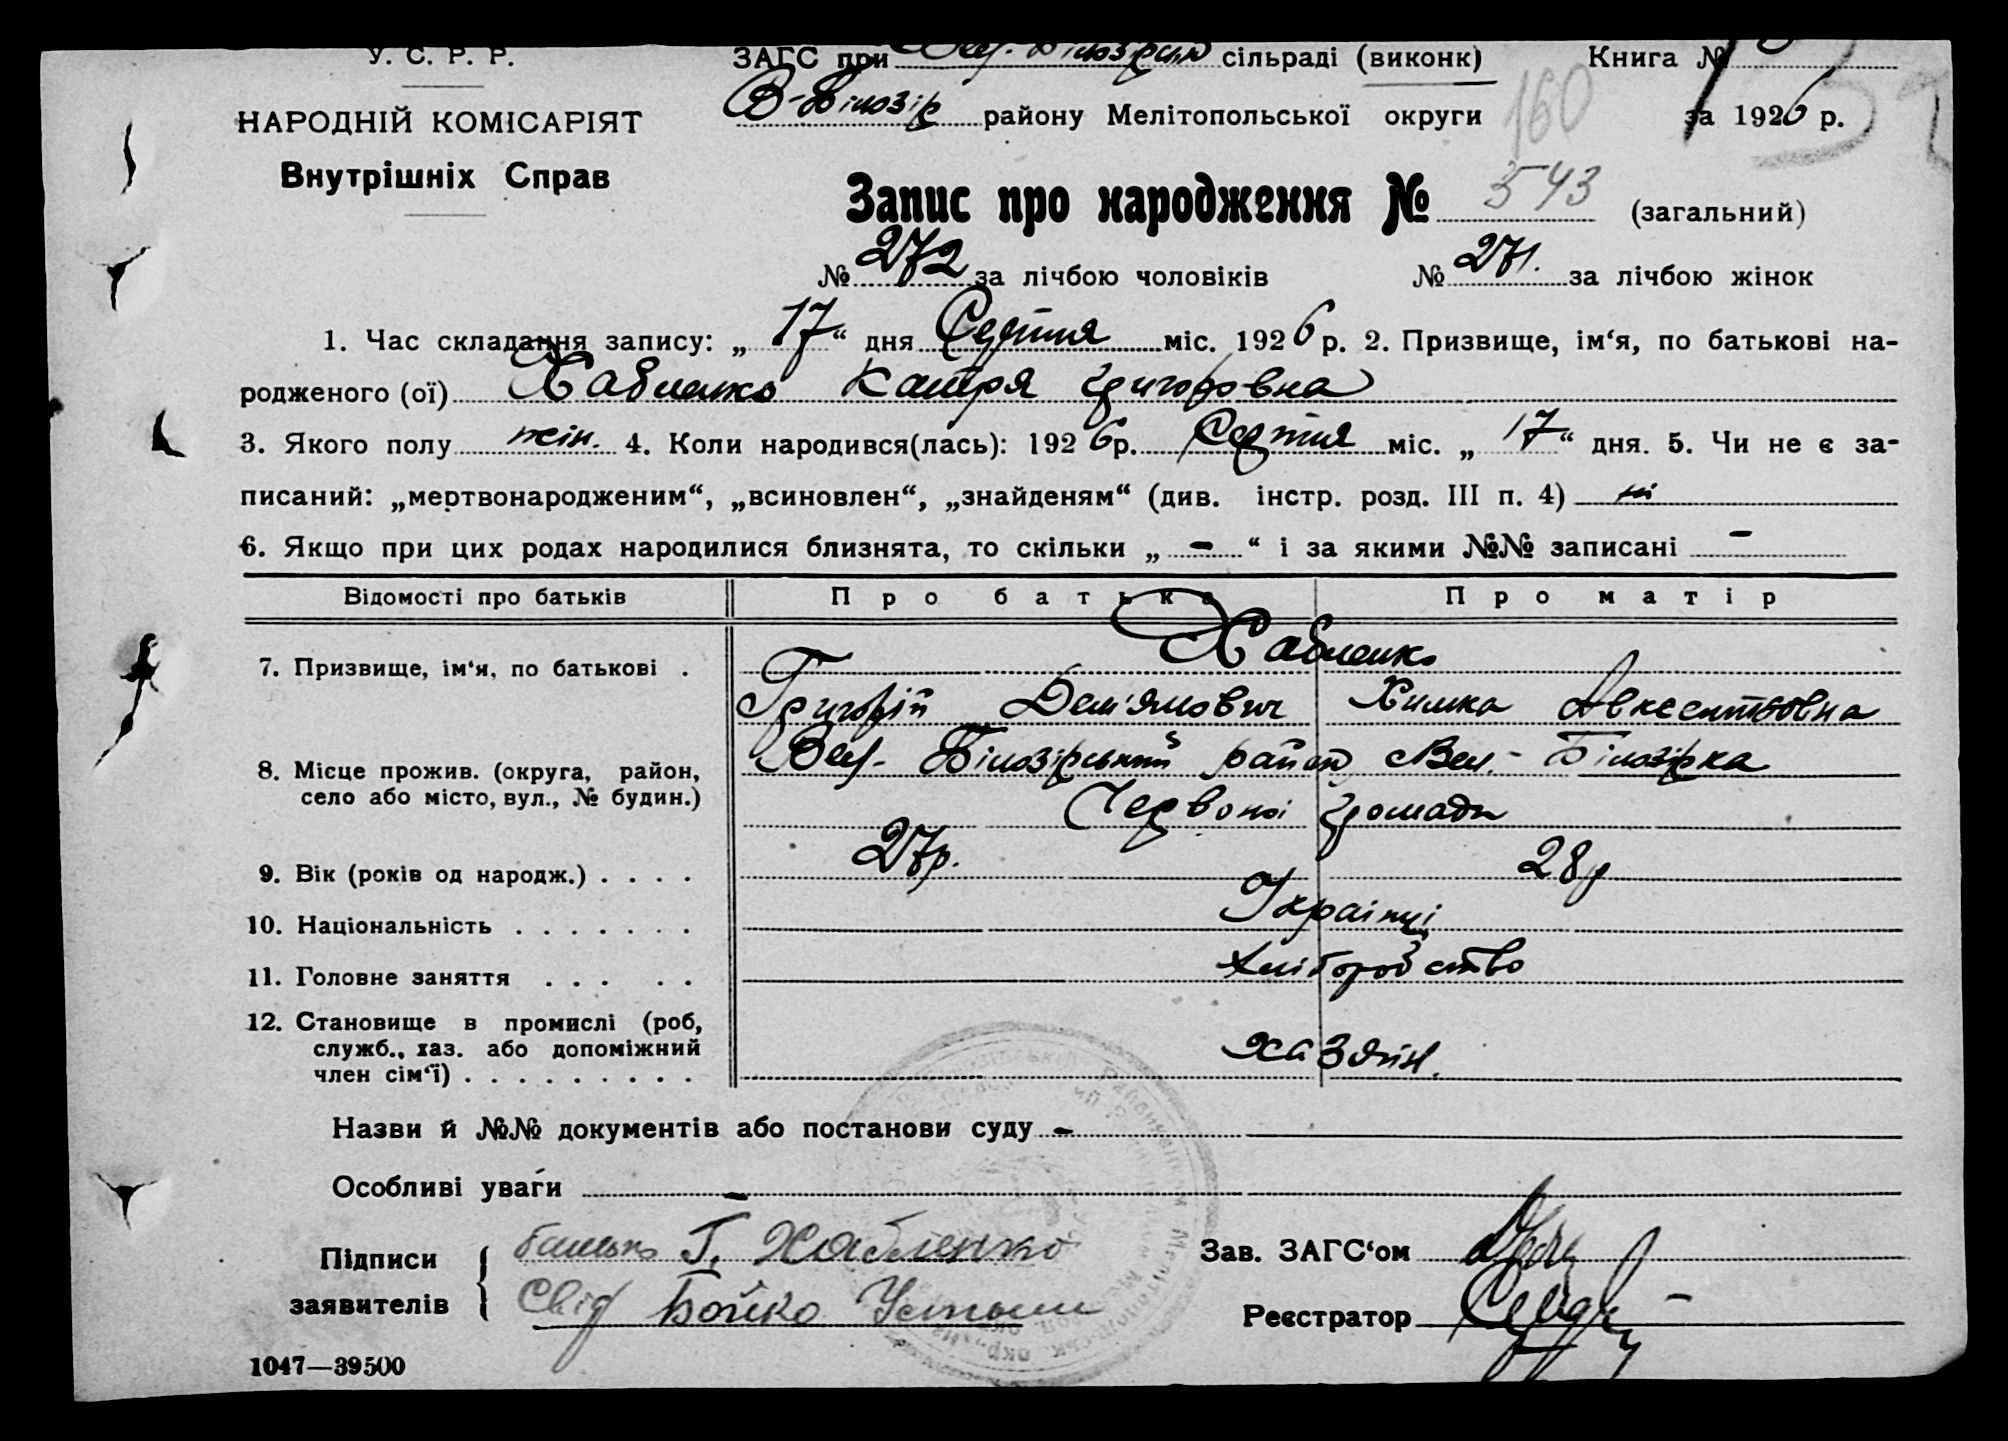 У. С. Р. Р.
ЗАГС при Вел. Білозірській сільраді (виконк) Книга №
НАРОДНІЙ КОМІСАРІЯТ
Внутрішніх Справ
В-Білозір району Мелітопольської округи за 1926 р.
160
Запис про народження № 543 (загальний)
№ 272 за лічбою чоловіків № 271. за лічбою жінок
1. Час складання запису: „ 17 “ дня Серпня міс. 1926 р. 2. Призвище, ім‘я, по батькові на-
родженого (ої) Хабленко Катря Григоровна
3. Якого полу жін. 4. Коли народився(лась): 1926 р. Серпня міс. „ 17 “ дня. 5. Чи не є за-
писаний: „мертвонародженим“, „всиновлен“, „знайденям“ (див. інстр. розд. III п. 4) ні
6. Якщо при цих родах народилися близнята, то скільки „ - “ і за якими №№ записані -
Відомості про батьків Про батька Про матір
Хабленко
7. Призвище, ім‘я, по батькові .
Григорій Дем'янович Химка Авксентьовна
8. Місце прожив. (округа, район,
село або місто, вул., № будин.)
Вел. Білозірський район Вел.-Білозірка
Червоної Громади
9. Вік (років од народж.) . . . . 27р. 28р
10. Національність . . . . . . . Українці
11. Головне заняття . . . . . Хліборобство
12. Становище в промислі (роб,
служб., хаз. або допоміжний
член сім‘ї) . . . . . . . . . хазяїн.
Назви й №№ документів або постанови суду -
Особливі уваги -
Підписи
заявителів
батько Г. Хабленко
Свід Бойко Устым
Зав. ЗАГС‘ом
Реєстратор
1047—39500